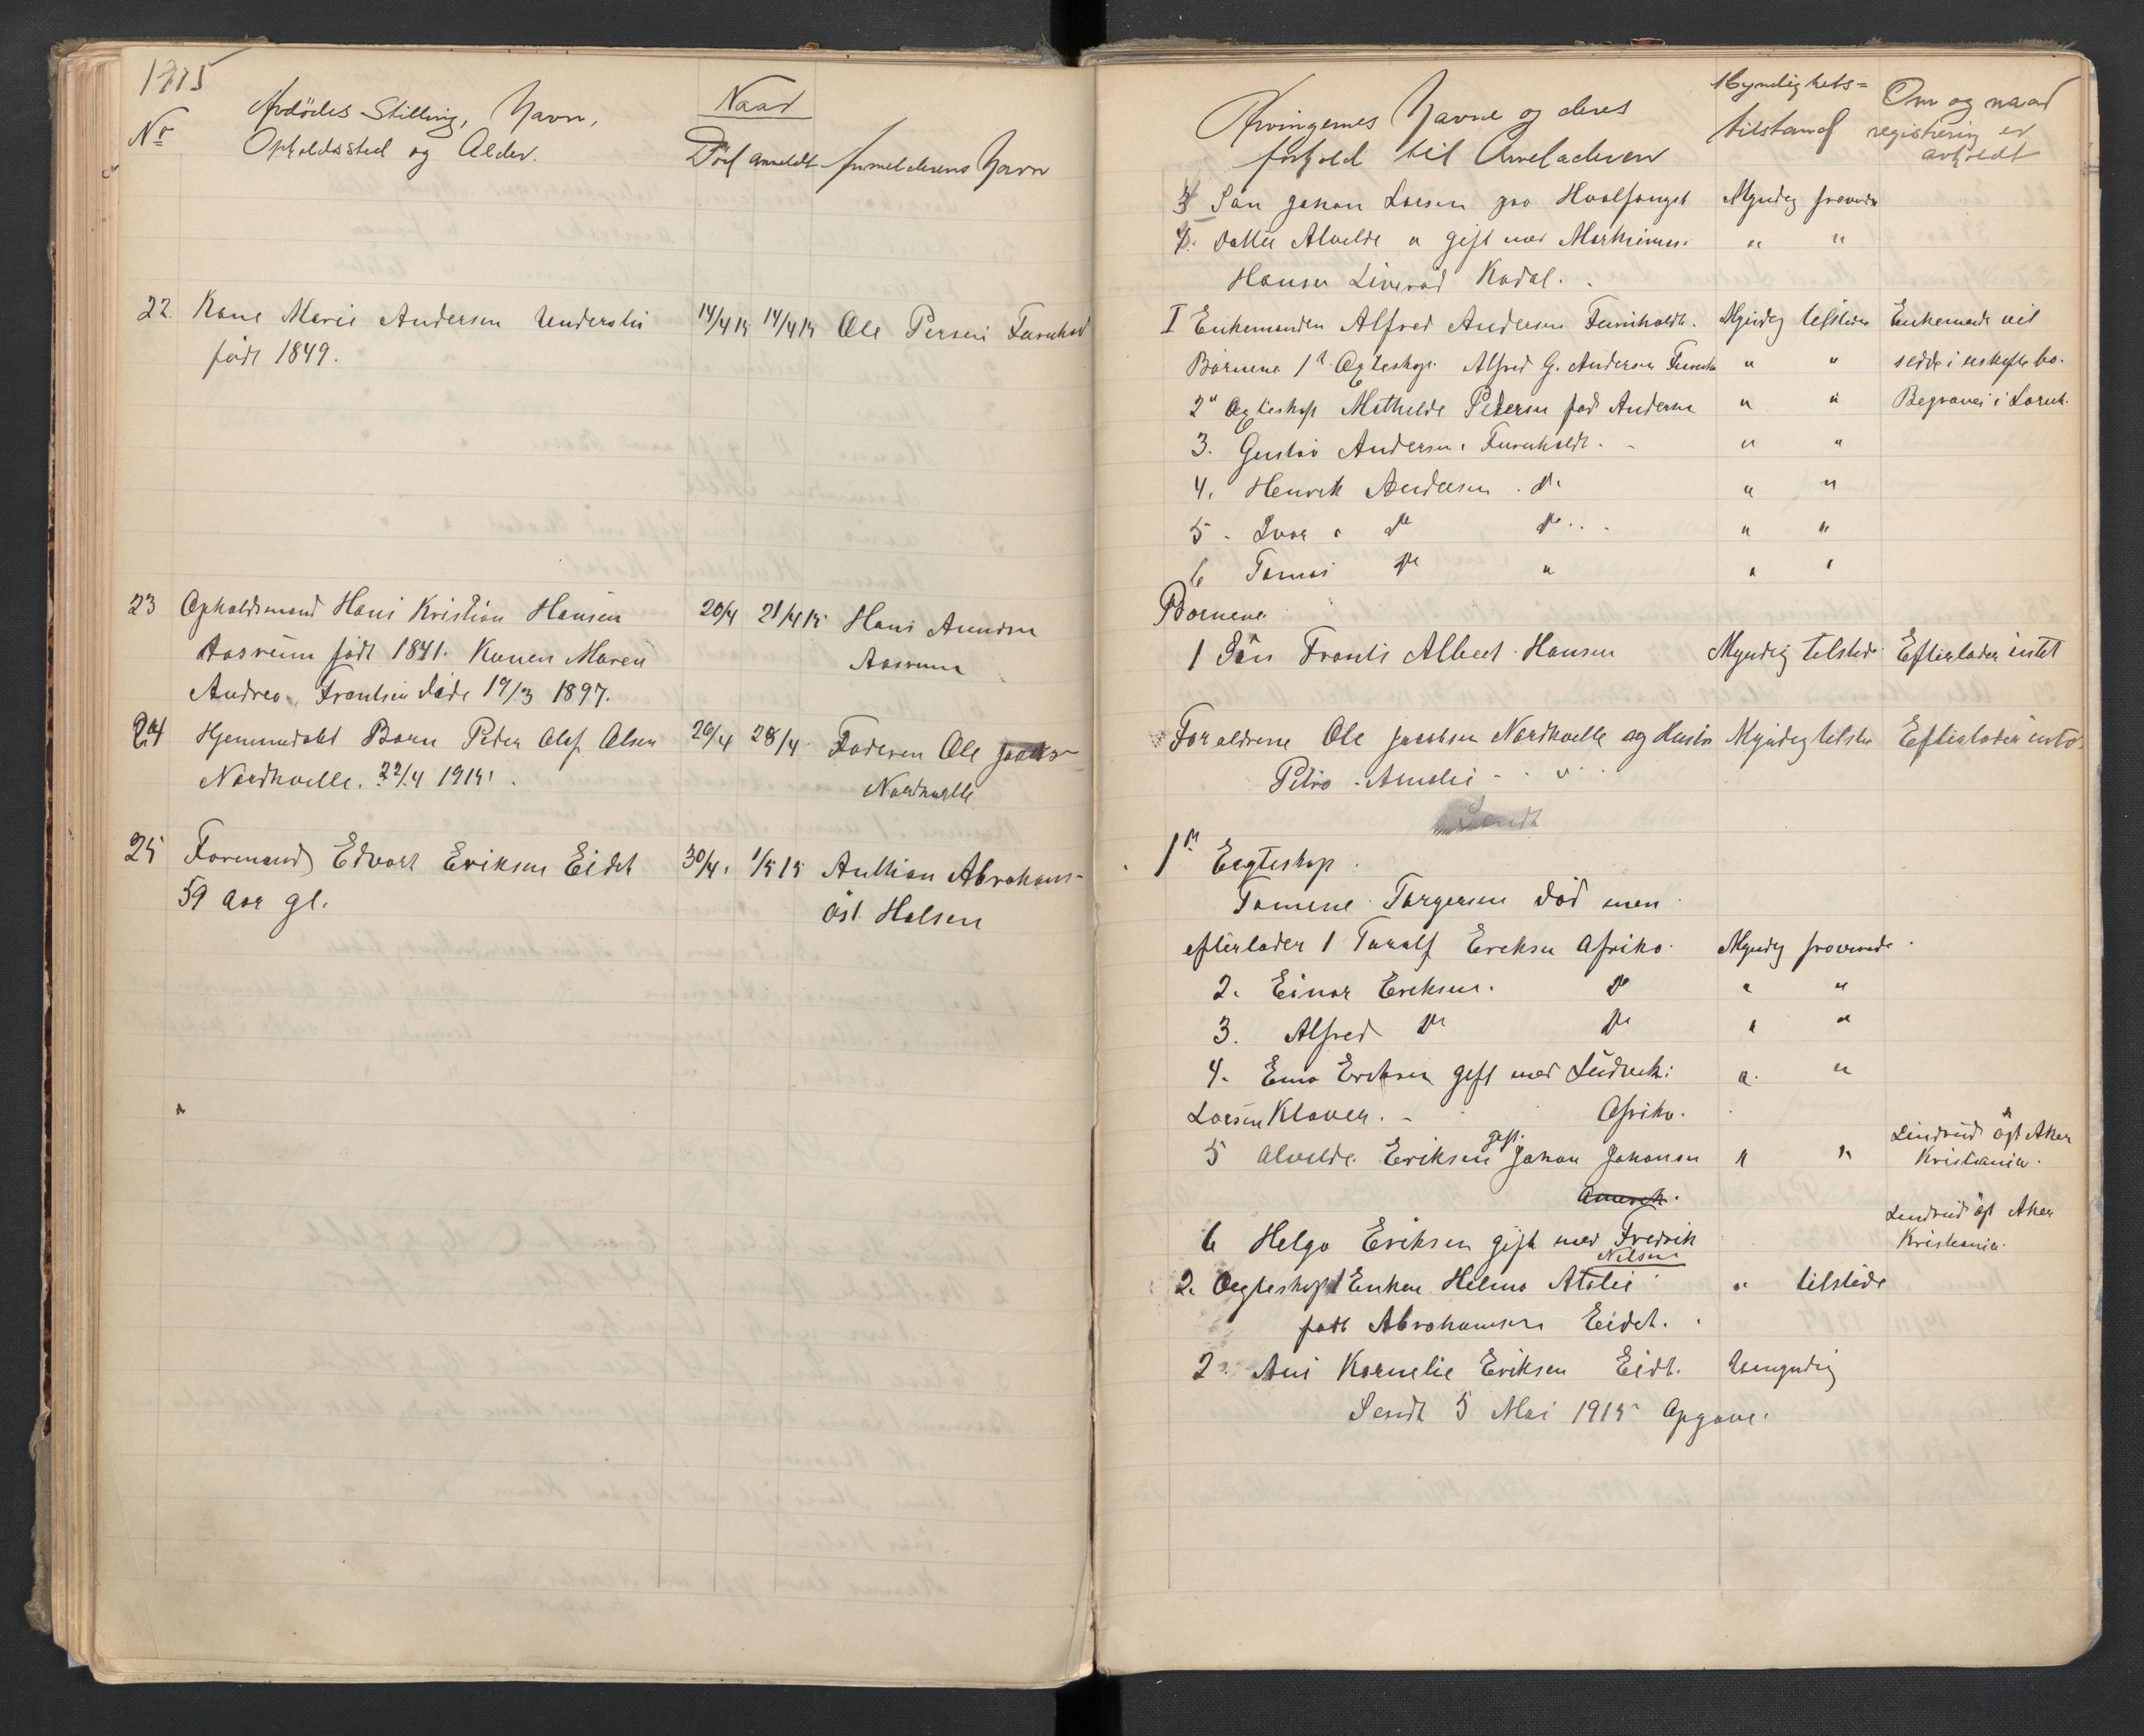 1915
No
Avdödes Stilling, Navn,
Opholdssted og Alder.
Naar
Död anmeldt
Anmelderens Navn
22. Kone Marie Andersen Understu
född 1849.
14/4 15 14/4 15 Ole Persen
23 Opholdsmand Hans Kristian Hansen
Aasrum född 1841. Konen Maren
Andrea Frantsen döde 19/3 1897.
20/4 21/4 15 Hans Aasrum
24 Hjemmedøbt Barn Peder Olaf Olsen
Nordkvelle. 22/4 1915.
26/4 28/4 Faderen Ole
Nordkvelle
25 Formand Edvart Eriksen Eidet
59 aar gl.
30/4. 1/5 15 Anthian Abrahams-
öst Halsen
Arvingernes Navne og deres
forhold til Arveladeren
Myndighets=
tilstand
Om og naar
registrering er
avholdt
3 Sön Johan Larsen paa Hvalfanget Myndig
4. Datter Alvilde " gift med " "
Hansen Liverød Kodal.
I Enkemanden Alfred Andersen Furuholdt. Myndig tilstede Enkemand vil
Børnene 1st Ægteskap. Alfred G. Andersen " " sidde i uskifte bo.
2" Ægteskap Mathilde Pedersen fød Andersen " " Begraves i Larvik.
3. Gustav Andersen Furuholdt. " "
4. Henrik Andersen do " "
5. Ivar do do " "
6 Tomas do " " "
Børnene
1 Sön Frants Albert Hansen Myndig tilstede Efterlader intet
Foraldrene Ole Jacobsen Nordkvelle og Hustru Myndig tilstede Efterlader intet
Petra Amalie "
Sendt
1st Eegteskap.
Tomine Torgersen död men
efterlader 1 Toralf Eriksen Afrika. Myndig fraværende
2. Einar Eriksen. do " "
3. Alfred do do " "
4. Ema Eriksen gift med Ludvik " "
Larsen Klaver. Afrika.
5 Alvilde Eriksen gift Johan Johansen " " Lindrud öst Aker
Kristiania.
Amerik.
6 Helga Eriksen gift med Fredrik Lindrud öst Aker
Nilsen Kristiania.
2. Oegteskap 1 Enken Helma Atalie " tilstede
född Abrahamsen Eidet.
2. Ani Kornelie Eriksen Eidt. Umyndig
Sendt 5 Mai 1915 Opgave.